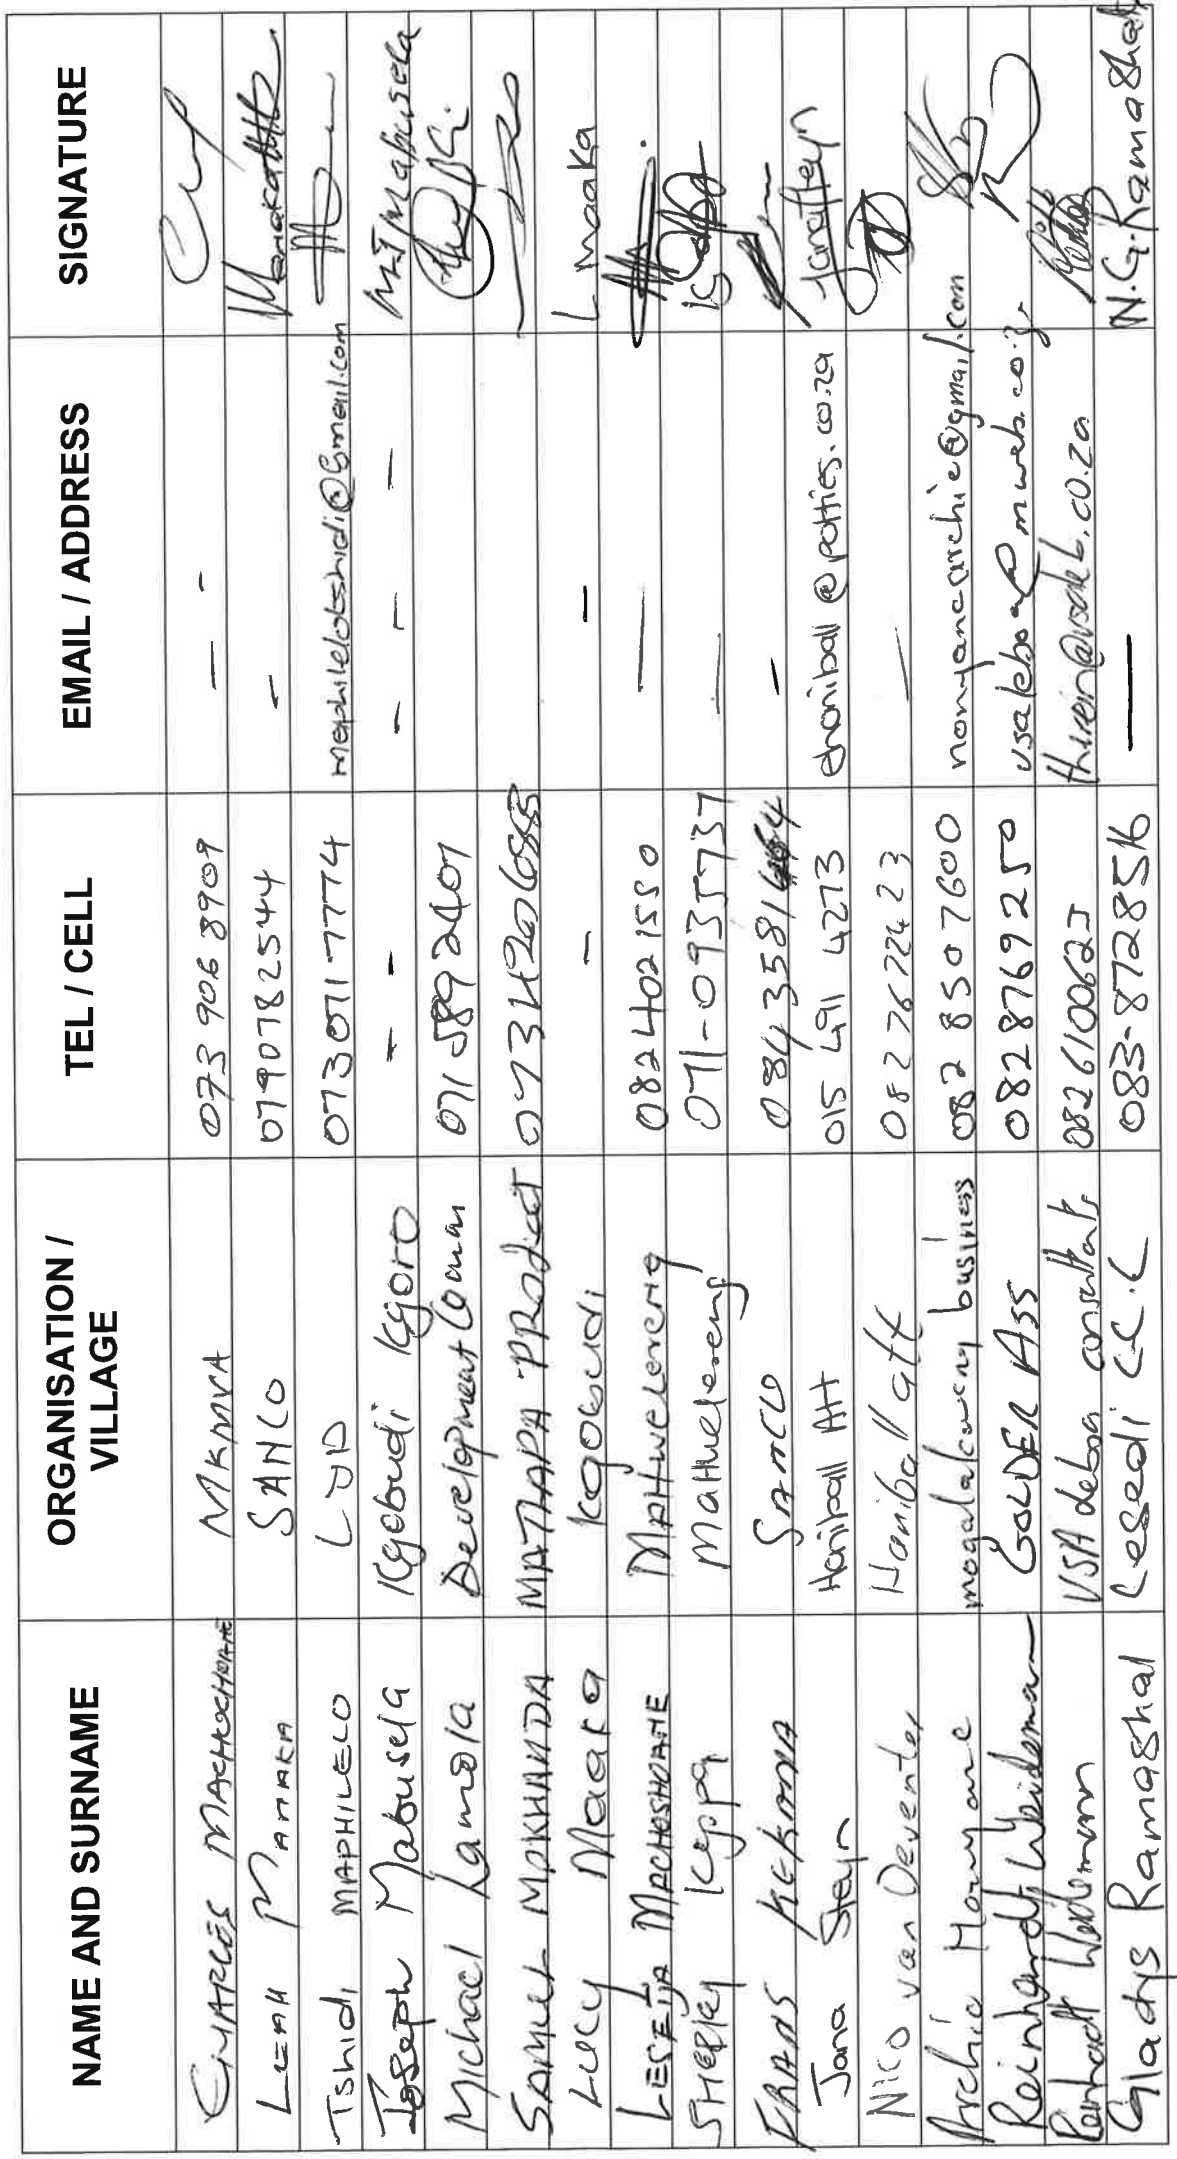 NAME AND SURNAME ORGANISATION / VILLAGE TEL / CELL EMAIL / ADDRESS SIGNATURE
CHARLES MACHOSHANE MKMVA 073 906 8909 - -
LEAH MAMAKA SANCO 0790782544 -
Tshidi MAPHILELO LJD 0730717774 maphilelotshidi@gmail.com
Joseph Mabusela Kgobudi Kgoro - - - - - MJ Mabusela
Michael Lamola Development 071 589 2407
SAMUEL MOKHANDA MATJAPA PROJECT 0734260688
Lucy Maaka Kgobudi - - L maaka
LESETJA MACHOSHOANE MAHWELERENG 0824021550 -
SHERLEY Kgppa Mahwelereng 071-0935737 -
FRANS KEKANA SANCO -
Jana Steyn Haniball Att 015 491 4273 ehaniball@potties.co.za
Nico van Deventer Haniball att 082 7672423 -
Archie Monyane mogalakwena business 082 8507600 monyanearchie@gmail.com
Reinhardt Weidemann GOLDER ASS 0828769250 vsaleboa@mweb.co.za
Reinhardt Weidemann VSA leboa consultants 0826100625
Gladys Ramashal Lesedi C.C 083-8728516 - N.G. Ramashal